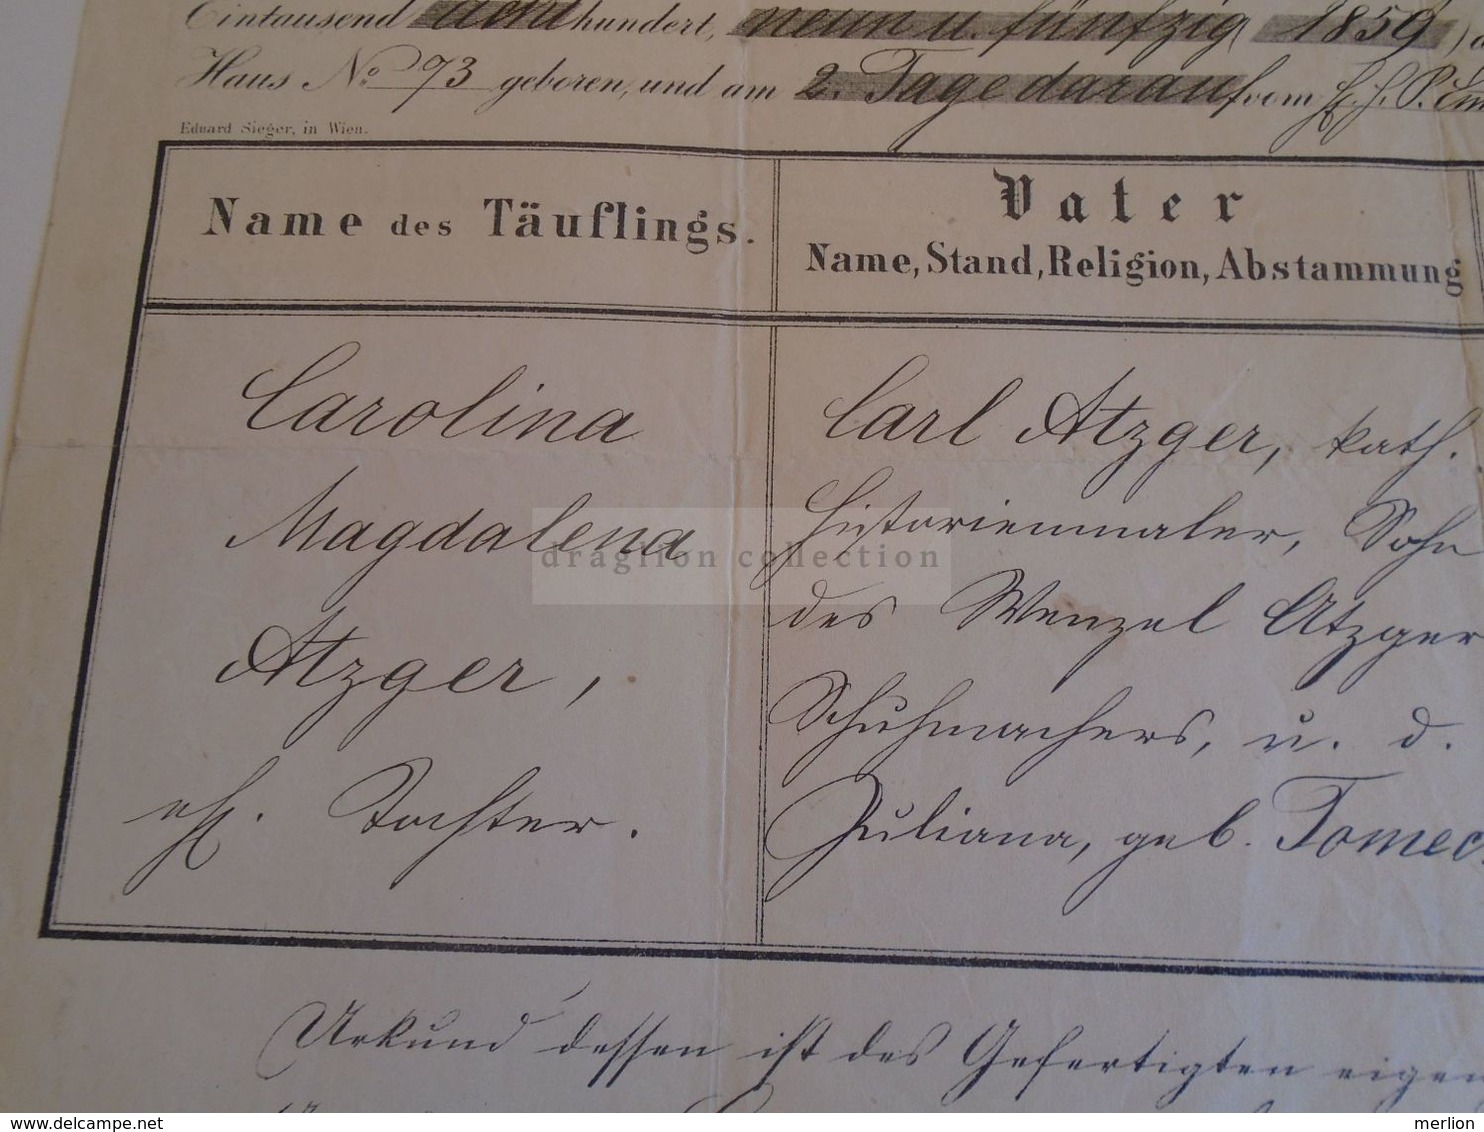 Eintausend achthundert, neun u. fünfzig (1859)
Haus No 73 geboren, und am 2. Tage darauf vom H. H. P.
Eduard Sieger, in Wien.
Name des Täuflings.
Carolina
Magdalena
Atzger,
ehl. Tochter.
Vater
Name, Stand, Religion, Abstammung
Carl Atzger, kath.
Historienmaler, Sohn
des Wenzel Atzger
Schuhmachers, u. d.
Juliana, geb. Tomec
Urkund dessen ist des Gefertigten eigen
dragilon collection
delcampe.net
merlion